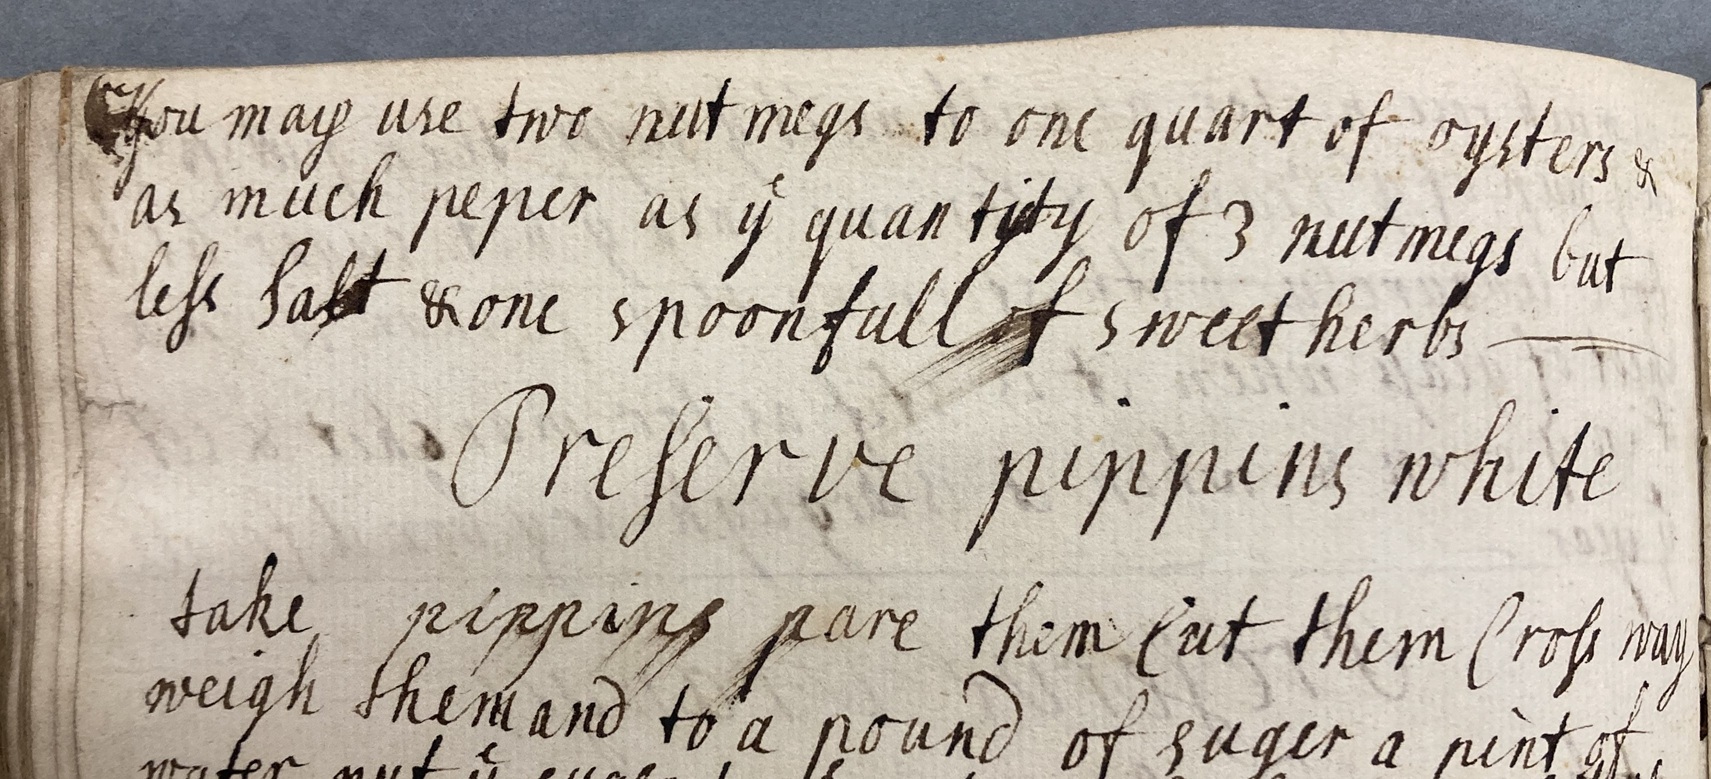 You may use two nutmegs to one quart of oysters &
as much peper as ye quantity of 3 nutmegs but
less Salt & one spoonfull of sweet herbs
Preserve pippins white
take pippins pare them Cut them Cross way
weigh them and to a pound of suger a pint of
water put ye suger